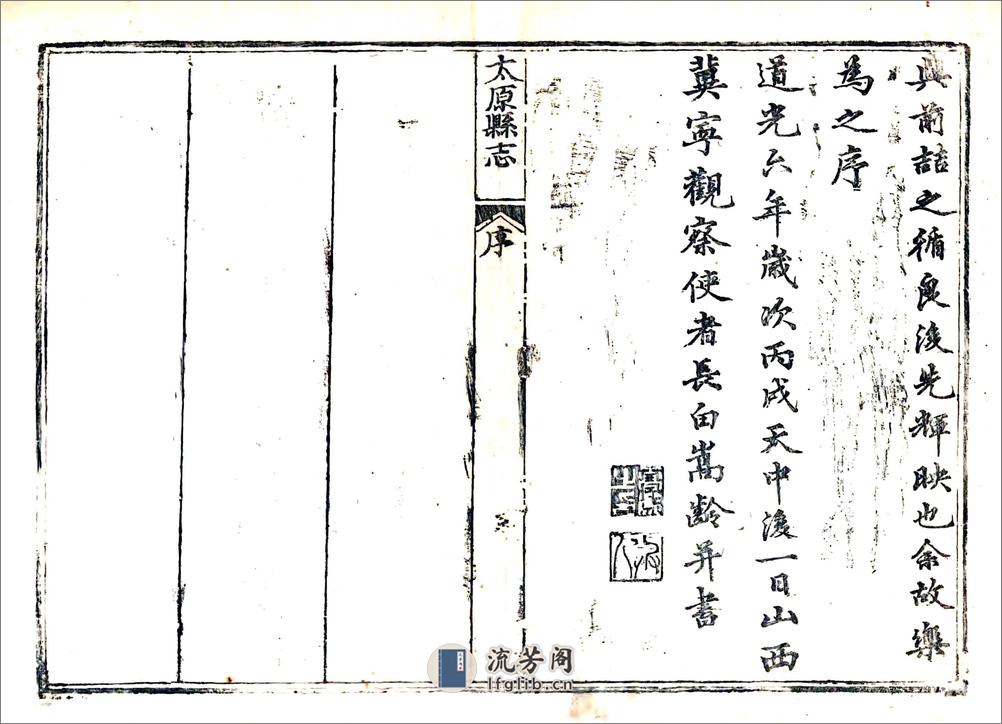 與前喆之循良後先輝映也余故樂
為之序
道光六年歲次丙戌天中後一日山西
冀寧觀察使者長白嵩齡并書
太原縣志
序
流芳阁
lfglib.cn